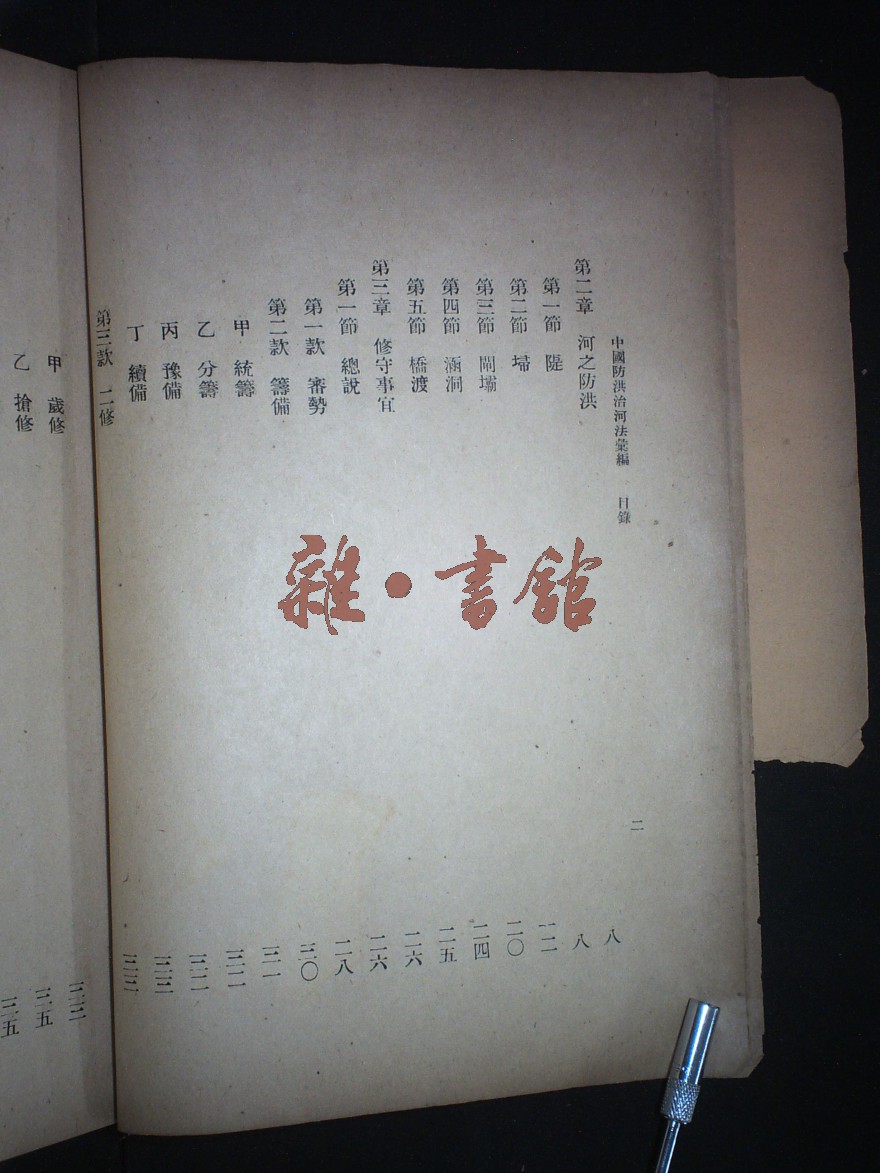 中國防洪治河法彙編 目錄 二
第二章 河之防洪 八
第一節 隄 八
第二節 埽 一二
第三節 閘壩 二〇
第四節 涵洞 二四
第五節 橋渡 二五
第三章 修守事宜 二六
第一節 總說 二六
第一款 審勢 二八
第二款 籌備 三〇
甲 統籌 三一
乙 分籌 三二
丙 豫備 三二
丁 續備 三三
第三款 二修 三三
甲 歲修 三三
乙 搶修 三五
三五
雜·書館